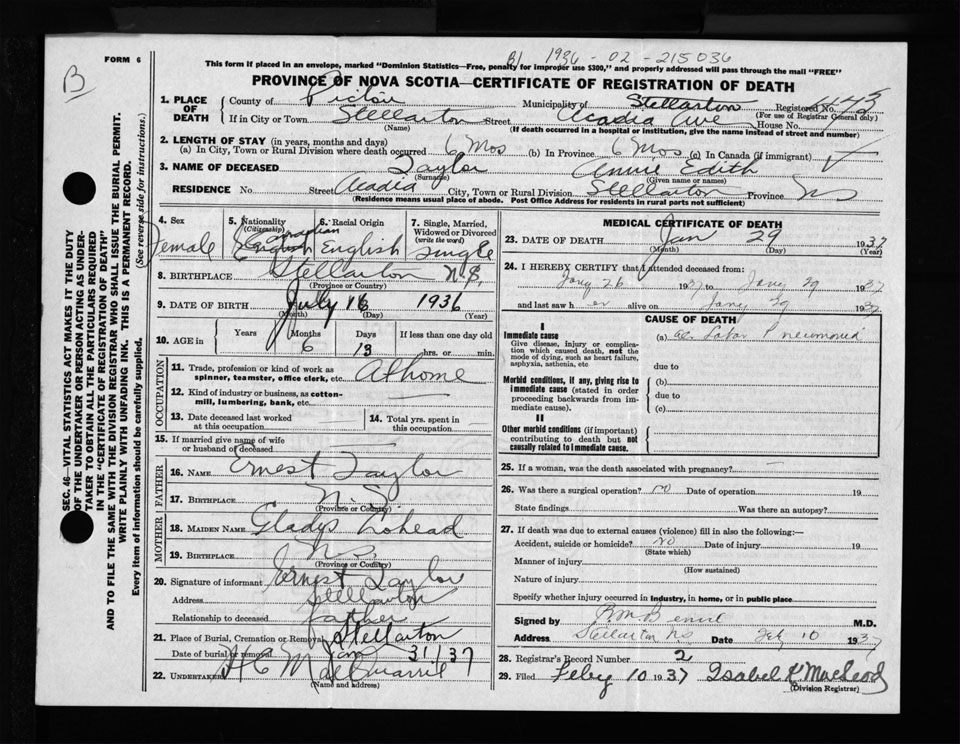 FORM 6
B
B/ 1936-02-215036
This form if placed in an envelope, marked "Dominion Statistics—Free, penalty for improper use $300," and properly addressed will pass through the mail "FREE"
PROVINCE OF NOVA SCOTIA—CERTIFICATE OF REGISTRATION OF DEATH
SEC. 46—VITAL STATISTICS ACT MAKES IT THE DUTY
OF THE UNDERTAKER OR PERSON ACTING AS UNDER-
TAKER TO OBTAIN ALL THE PARTICULARS REQUIRED
IN THE "CERTIFICATE OF REGISTRATION OF DEATH"
AND TO FILE THE SAME WITH THE DIVISION REGISTRAR WHO SHALL ISSUE THE BURIAL PERMIT.
WRITE PLAINLY WITH UNFADING INK. THIS IS A PERMANENT RECORD.
Every item of information should be carefully supplied. (See reverse side for instructions.)
1. PLACE OF DEATH
County of Pictou Municipality of Stellarton Registered No.
(For use of Registrar General only)
If in City or Town Stellarton Street Acadia Ave House No.
(Name) (If death occurred in a hospital or institution, give the name instead of street and number)
2. LENGTH OF STAY (in years, months and days)
(a) In City, Town or Rural Division where death occurred 6 Mos (b) In Province 6 Mos (c) In Canada (if immigrant)
3. NAME OF DECEASED Taylor Annie Edith
(Surname) (Given name or names)
RESIDENCE No. Street Acadia City, Town or Rural Division Stellarton Province NS
(Residence means usual place of abode. Post Office Address for residents in rural parts not sufficient)
4. Sex Female
5. Nationality (Citizenship) Canadian English
6. Racial Origin English
7. Single, Married, Widowed or Divorced (write the word) Single
8. BIRTHPLACE Stellarton N.S.
(Province or Country)
9. DATE OF BIRTH July 16 1936
(Month) (Day) (Year)
10. AGE in Years Months 6 Days 13 If less than one day old hrs. or min.
OCCUPATION
11. Trade, profession or kind of work as spinner, teamster, office clerk, etc. At home
12. Kind of industry or business, as cotton-mill, lumbering, bank, etc.
13. Date deceased last worked at this occupation
14. Total yrs. spent in this occupation
15. If married give name of wife or husband of deceased
FATHER
16. NAME Ernest Taylor
17. BIRTHPLACE N.S.
(Province or Country)
MOTHER
18. MAIDEN NAME Gladys
19. BIRTHPLACE N.S.
(Province or Country)
20. Signature of informant Ernest Taylor
Address Stellarton
Relationship to deceased father
21. Place of Burial, Cremation or Removal Stellarton
Date of burial or removal Jan 31/37
22. UNDERTAKER H C
(Name and address)
MEDICAL CERTIFICATE OF DEATH
23. DATE OF DEATH Jan 29 1937
(Month) (Day) (Year)
24. I HEREBY CERTIFY that I attended deceased from:
Jany 26 1937 to Jany 29 1937
and last saw her alive on Jany 29 1937
CAUSE OF DEATH
I
Immediate cause
Give disease, injury or complication which caused death, not the mode of dying, such as heart failure, asphyxia, asthenia, etc
(a) Lobar Pneumonia
due to
Morbid conditions, if any, giving rise to immediate cause (stated in order proceeding backwards from immediate cause).
(b)
due to
(c)
II
Other morbid conditions (if important) contributing to death but not causally related to immediate cause.
25. If a woman, was the death associated with pregnancy? —
26. Was there a surgical operation? no Date of operation 19
State findings Was there an autopsy?
27. If death was due to external causes (violence) fill in also the following:—
Accident, suicide or homicide? no Date of injury 19
(State which)
Manner of injury
(How sustained)
Nature of injury
Specify whether injury occurred in industry, in home, or in public place
Signed by M.D.
Address Stellarton NS Date Feb 10 1937
28. Registrar's Record Number 2
29. Filed Feby 10 1937 Isabel K. MacLeod
(Division Registrar)